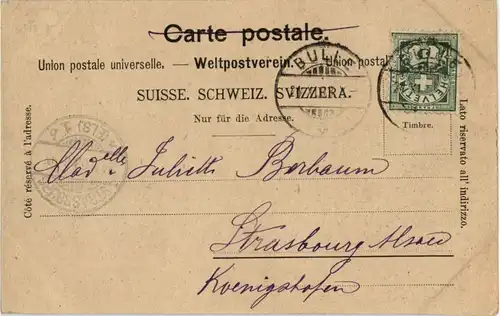 Carte postale.
Union postale universelle. — Weltpostverein. — Union postale
SUISSE. SCHWEIZ. SVIZZERA.
Nur für die Adresse.
BULLE
Timbre.
Côté réservé à l'adresse.
Lato riservato all' indirizzo.
Madelle Juliette Berbaum
Strasbourg Alsace
Koenigshofen